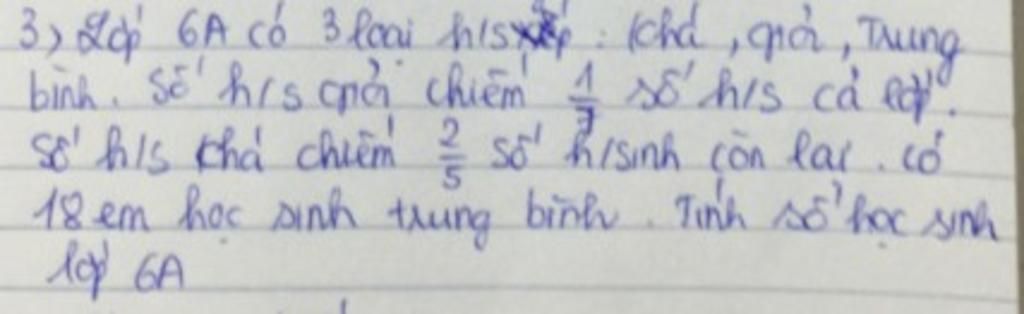 3) Lớp 6A có 3 loại h/s : Khá, giỏi, Trung
bình. Số h/s giỏi chiếm 1/7 số h/s cả lớp.
Số h/s khá chiếm 2/5 số h/sinh còn lại. có
18 em học sinh trung bình. Tính số học sinh
lớp 6A